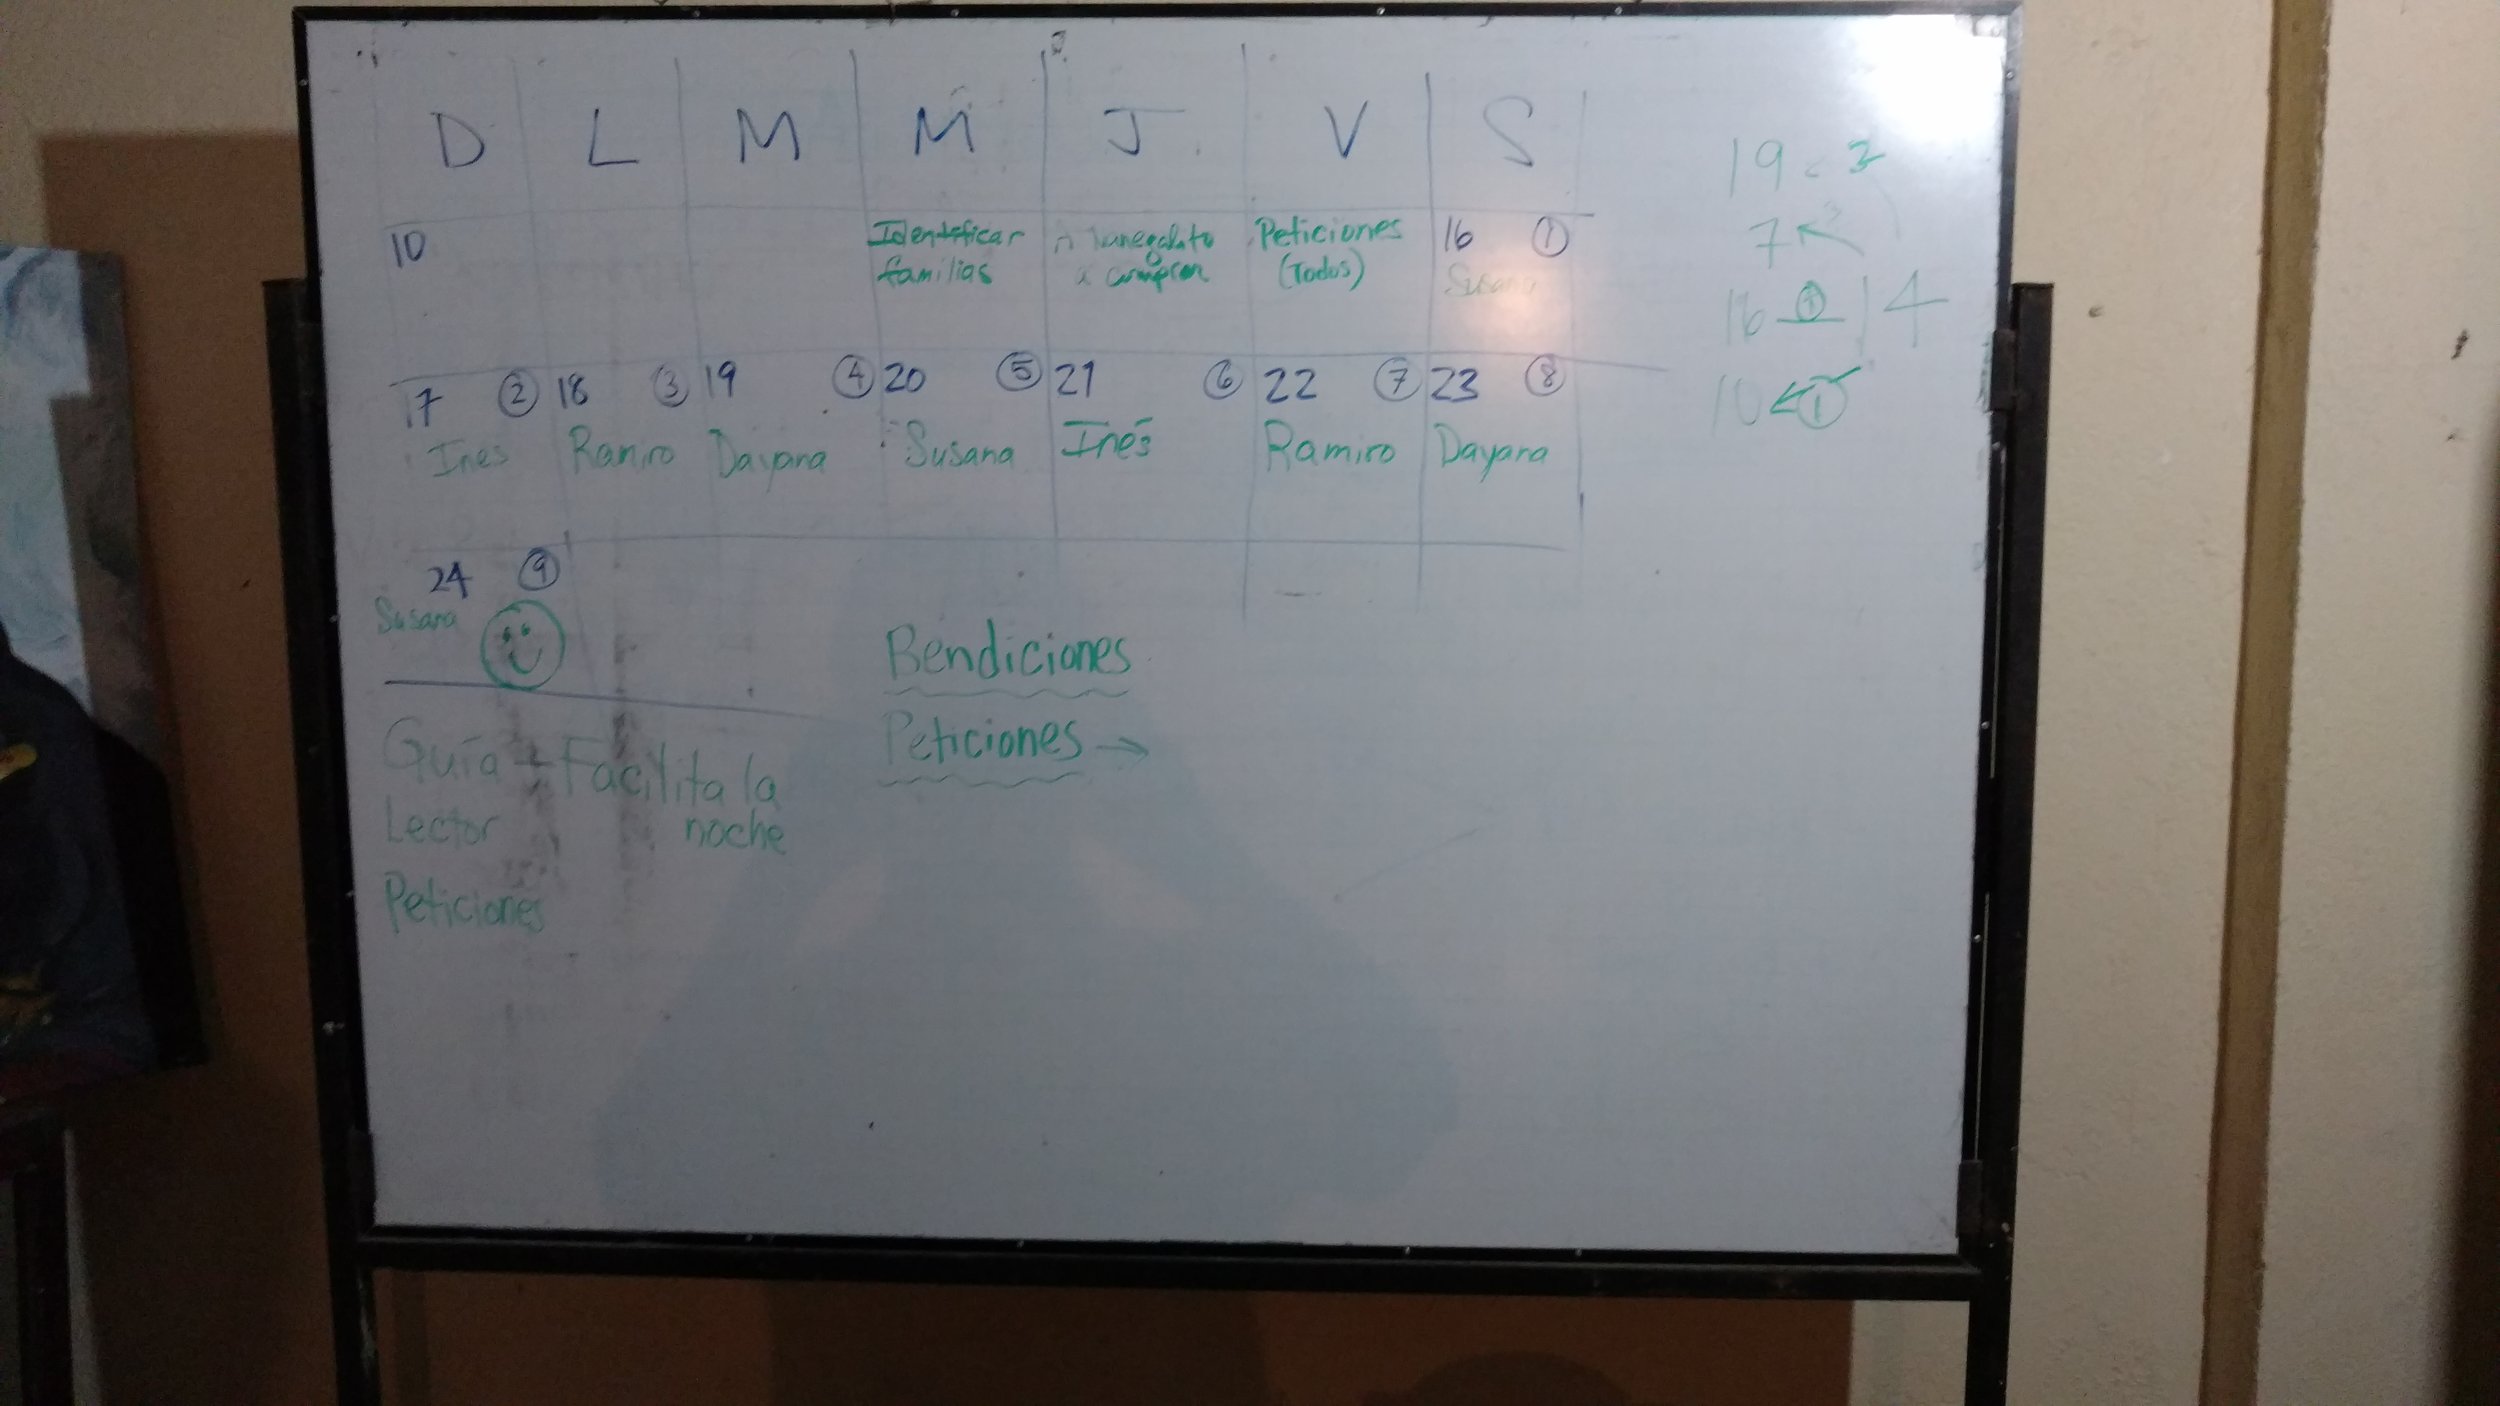 D L M M J V S
10 Identificar Peticiones 16 ①
familias a comprar (Todos) Susana
17 ② 18 ③ 19 ④ 20 ⑤ 21 ⑥ 22 ⑦ 23 ⑧
Ines Ramiro Dayana Susana Inés Ramiro Dayana
24 ⑨
Susana
Guía → Facilita la
Lector noche
Peticiones
Bendiciones
Peticiones →
19 < 3
7
16 ① 14
10 < ①